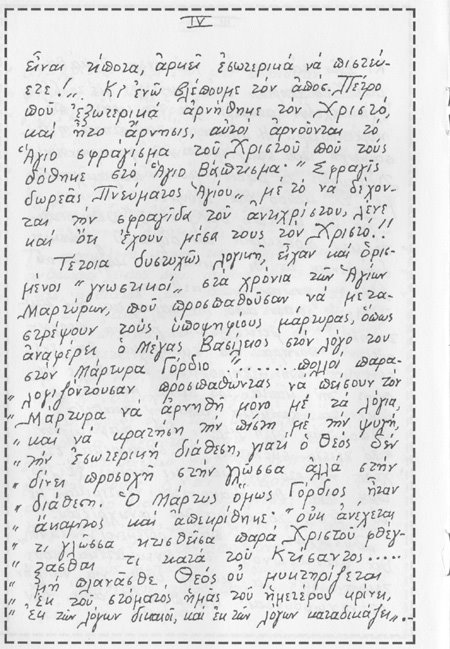 IV
εἶναι τίποτα, ἀρκεῖ ἐσωτερικά νά πιστεύ-
ετε!„ Κι' ἐνῶ βλέπουμε τόν ἀπόσ. Πέτρο
πού ἐξωτερικά ἀρνήθηκε τόν Χριστό,
καί ἦτο ἄρνησις, αὐτοί ἀρνοῦνται τό
Ἅγιο σφράγισμα τοῦ Χριστοῦ πού τούς
δόθηκε στό Ἅγιο Βάπτισμα: "Σφραγίς
δωρεᾶς Πνεύματος Ἁγίου„ μέ τό νά δέχον-
ται τήν σφραγῖδα τοῦ ἀντιχρίστου, λένε
καί ὅτι ἔχουν μέσα τους τόν Χριστό!!
Τέτοια δυστυχῶς λογική, εἶχαν καί ὁρισ-
μένος "γνωστικοί„ στα χρόνια τῶν Ἁγίων
Μαρτύρων, πού προσπαθοῦσαν νά μετα-
στρέψουν τούς ὑποψηφίους μάρτυρας, ὅπως
ἀναφέρει ὁ Μέγας Βασίλειος στόν λόγο του
στόν Μάρτυρα Γόρδιο "....... πολλοί παρα-
„ λογιζόντουσαν προσπαθώντας νά πείσουν τόν
„ Μάρτυρα νά ἀρνηθῆ μόνο μέ τά λόγια,
„ καί νά κρατήση τήν πίστη μέ τήν ψυχή,
„ τήν ἐσωτερική διάθεση, γιατί ὁ Θεός δέν
„ δίνει προσοχή στήν γλῶσσα ἀλλά στήν
„ διάθεση. Ὁ Μάρτυς ὅμως Γόρδιος ἦταν
„ ἄκαμπτος καί ἀπεκρίθηκε: "οὐκ ἀνέχεται
„ τι γλῶσσα κτισθεῖσα παρά Χριστοῦ φθέγ-
„ ξασθαι τι κατά τοῦ Κτίσαντος.....
„ Μή πλανᾶσθε, Θεός οὐ μυκτηρίζεται
„ ἐκ τοῦ στόματος ἡμᾶς τοῦ ἡμετέρου κρίνει,
„ ἐκ τῶν λόγων δικαιοῖ, καί ἐκ τῶν λόγων καταδικάζει„..